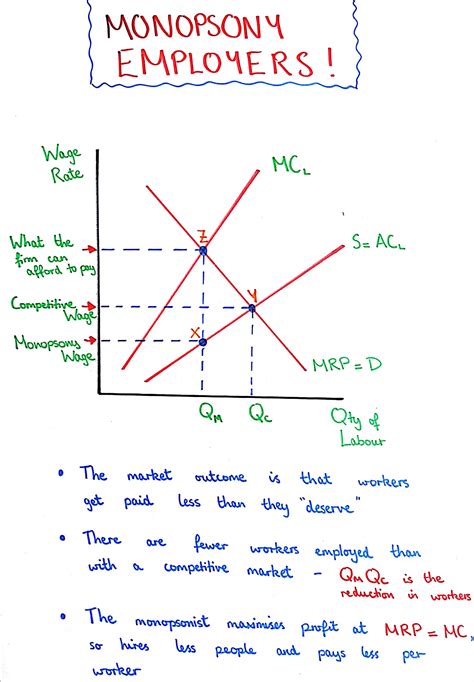 MONOPSONY
EMPLOYERS!
Wage
Rate
MC_L
Z
S=AC_L
What the
firm can
afford to pay
Y
Competitive
Wage
X
Monopsony
Wage
MRP=D
Q_M
Q_C
Qty of
Labour
• The market outcome is that workers
get paid less than they "deserve"
• There are fewer workers employed than
with a competitive market - Q_M Q_C is the
reduction in workers
• The monopsonist maximises profit at MRP = MC_L
so hires less people and pays less per
worker